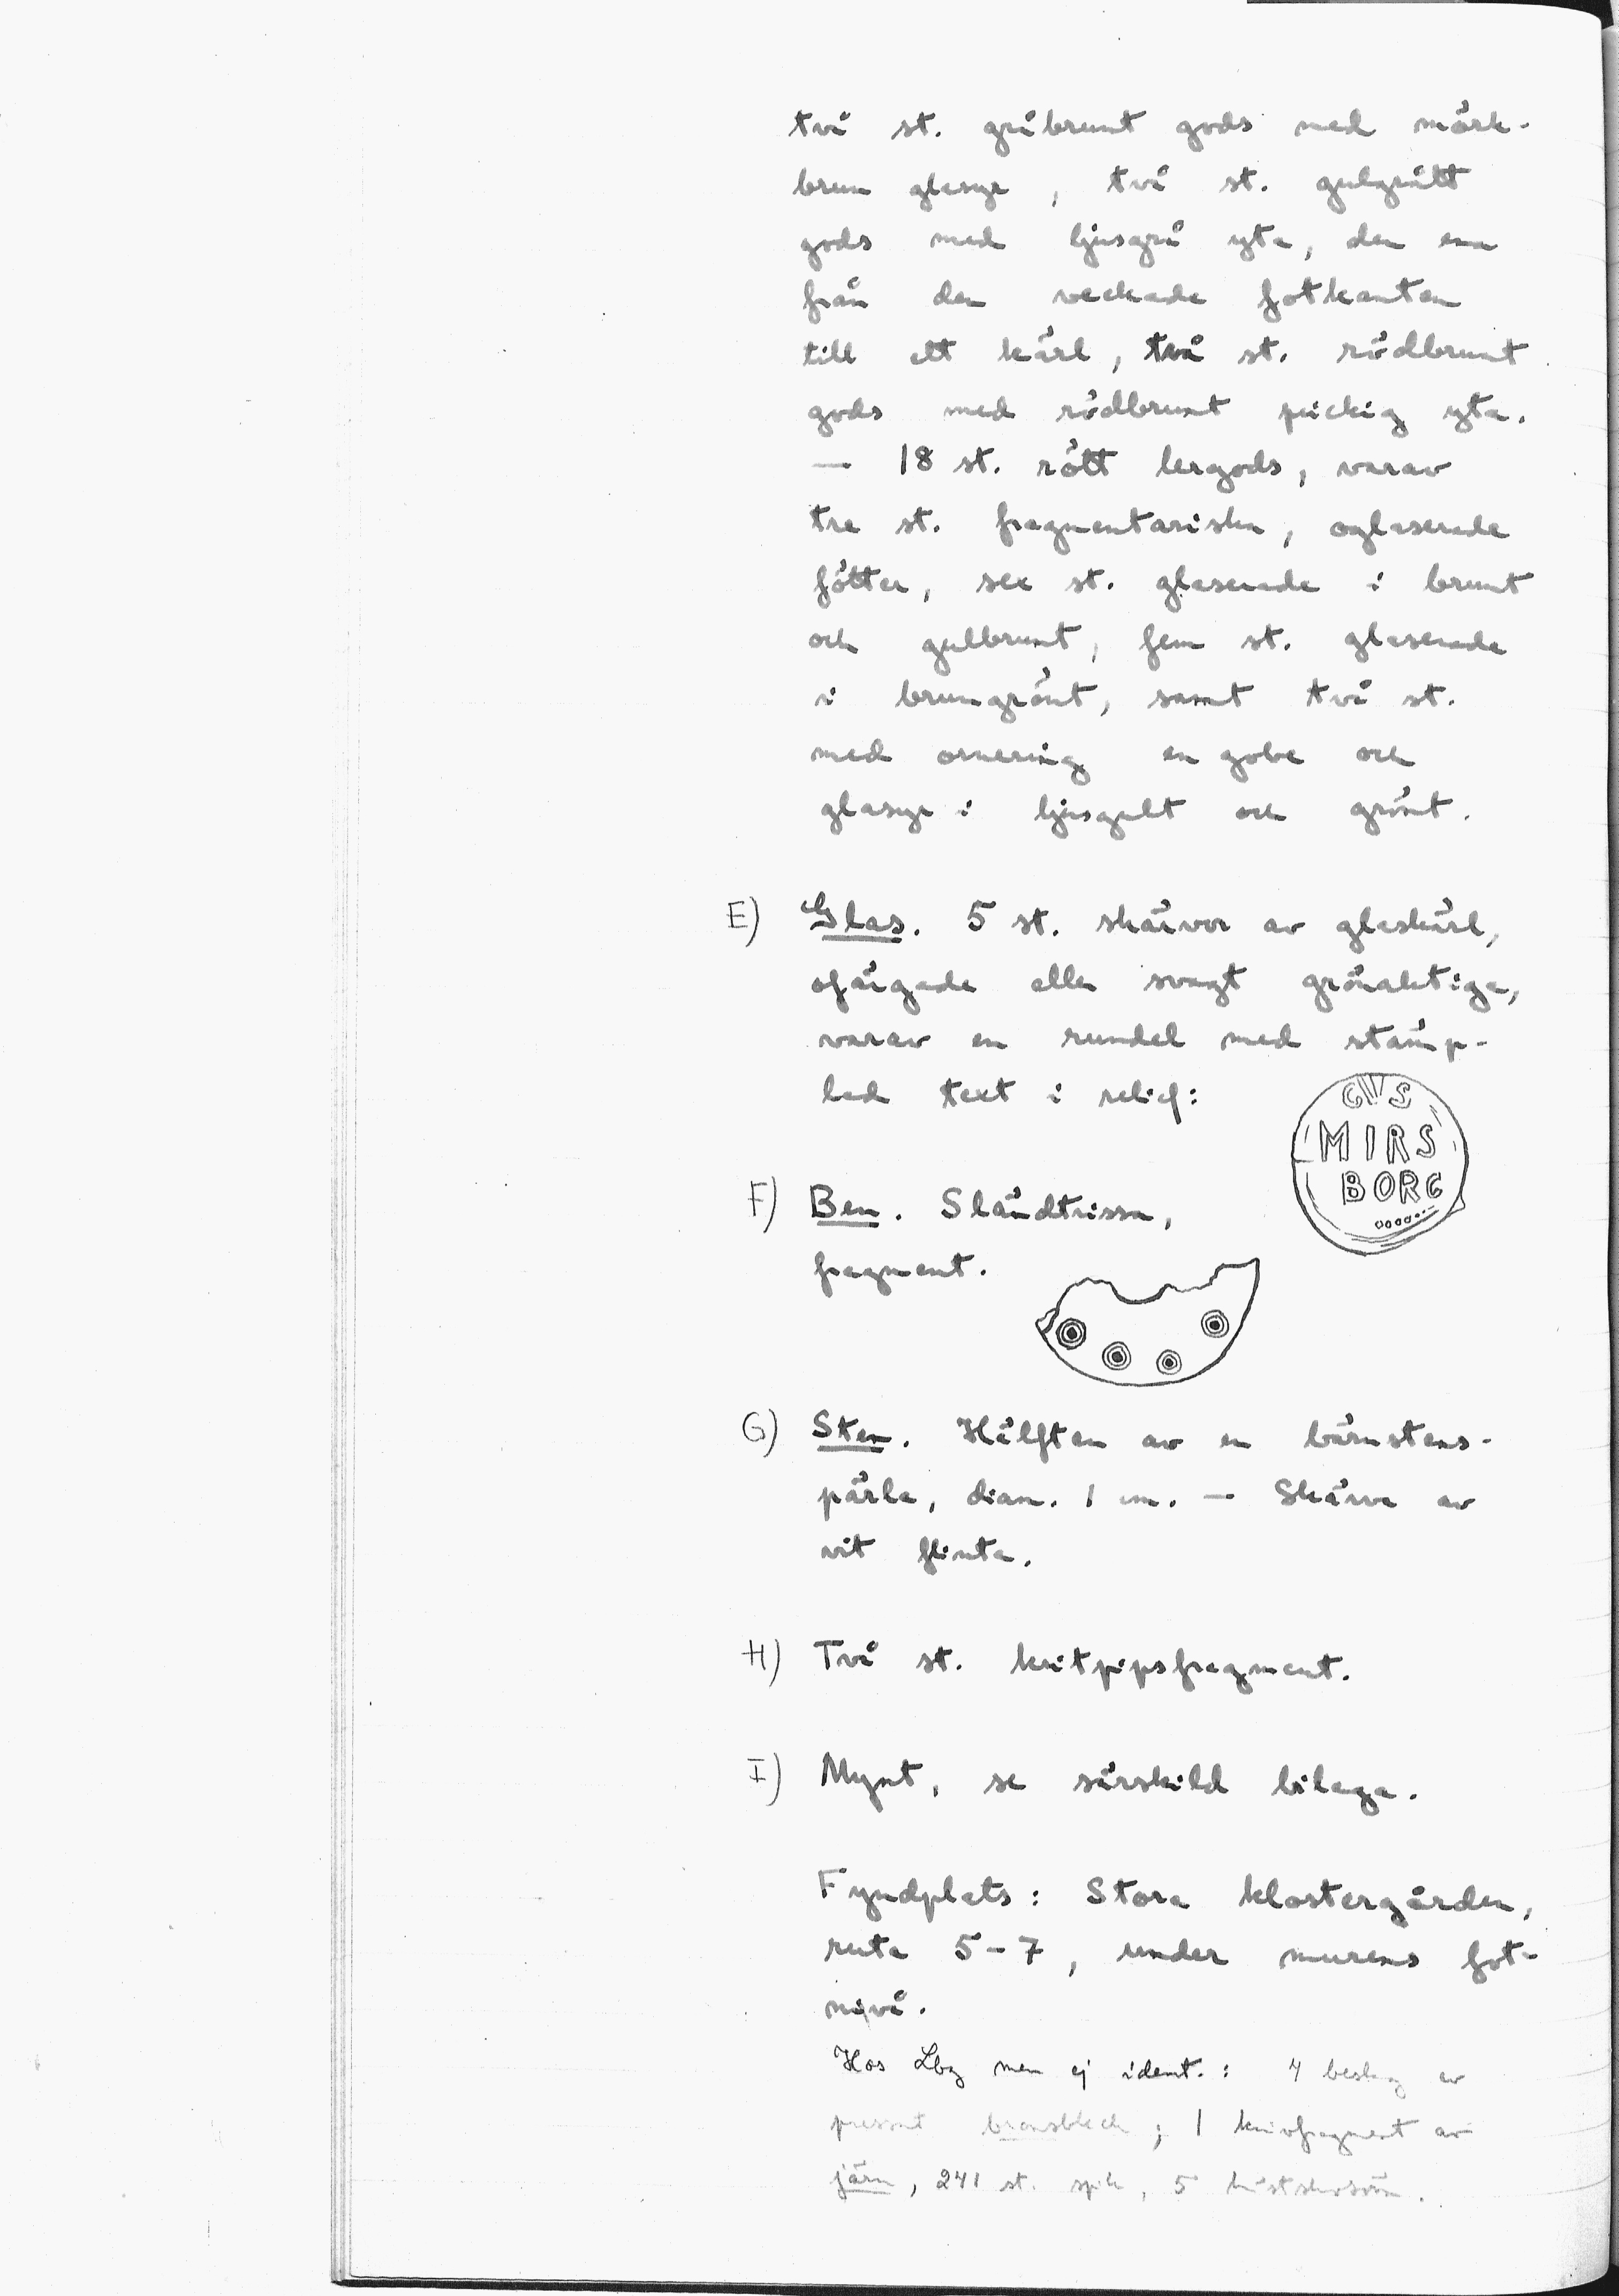 två st. gråbrunt gods med mörk-
brun glasyr, två st. gulgrått
gods med ljusgrå yta, den ena
från den veckade fotkanten
till ett kärl, två st. rödbrunt
gods med rödbrunt prickig yta.
— 18 st. rött lergods, varav
tre st. fragmentariska, oglaserade
fötter, sex st. glaserade i brunt
och gulbrunt, fem st. glaserade
i brungrönt, samt två st.
med ornering en gobe och
glasyr i ljusgult och grönt.
E) Glas. 5 st. skärvor av glaskärl,
ofärgade eller svagt grönaktiga,
varav en rundel med stämp-
lad text i relief:
G V S
MIRS
BORG
F) Ben. Sländtrissa,
fragment.
G) Sten. Hälften av en bärnstens-
pärla, diam. 1 cm. — Skärva av
vit flinta.
H) Två st. kritpipsfragment.
I) Mynt, se särskild bilaga.
Fyndplats: Stora klostergården,
ruta 5-7, under murens fot-
nivå.
Hos Lbg men ej ident.: 4 beslag av
pressat bronsbleck; 1 knivfragment av
järn, 241 st. spik, 5 hästskosöm.